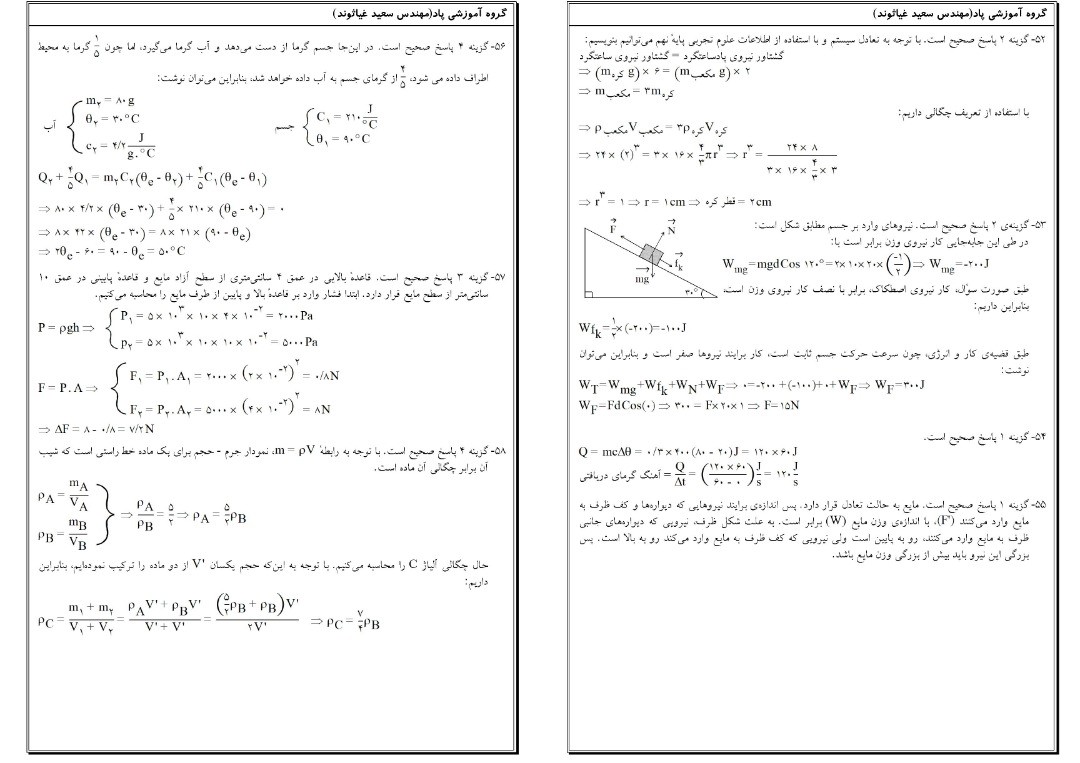 گروه آموزشی پاد(مهندس سعید غیاثوند)
۵۲- گزینه ۲ پاسخ صحیح است. با توجه به تعادل سیستم و با استفاده از اطلاعات علوم تجربی پایهٔ نهم می‌توانیم بنویسیم:
گشتاور نیروی پادساعتگرد = گشتاور نیروی ساعتگرد
⇒ (m کره g) × ۶ = (m مکعب g) × ۲
⇒ m مکعب = ۳m کره
با استفاده از تعریف چگالی داریم:
⇒ ρ مکعب V مکعب = ۳ρ کره V کره
⇒ ۲۴ × (۲)^۳ = ۳ × ۱۶ × ۴/۳ πr^۳ ⇒ r^۳ = (۲۴ × ۸)/(۳ × ۱۶ × ۴/۳ × ۳)
⇒ r^۳ = ۱ ⇒ r = ۱cm ⇒ قطر کره = ۲cm
۵۳- گزینه‌ی ۲ پاسخ صحیح است. نیروهای وارد بر جسم مطابق شکل است:
در طی این جابه‌جایی کار نیروی وزن برابر است با:
W_mg = mgdCos ۱۲۰° = ۲×۱۰×۲۰×(-۱/۲) ⇒ W_mg = -۲۰۰J
F N f_k mg ۳۰°
طبق صورت سؤال، کار نیروی اصطکاک، برابر با نصف کار نیروی وزن است،
بنابراین داریم:
Wf_k = ۱/۲ ×(-۲۰۰)=-۱۰۰J
طبق قضیه‌ی کار و انرژی، چون سرعت حرکت جسم ثابت است، کار برایند نیروها صفر است و بنابراین می‌توان
نوشت:
W_T = W_mg + Wf_k + W_N + W_F ⇒ ۰=-۲۰۰ +(-۱۰۰)+۰+W_F ⇒ W_F=۳۰۰J
W_F=FdCos(۰) ⇒ ۳۰۰ = F×۲۰×۱ ⇒ F=۱۵N
۵۴- گزینه ۱ پاسخ صحیح است.
Q = mcΔθ = ۰/۳ × ۴۰۰(۸۰ - ۲۰)J = ۱۲۰ × ۶۰J
آهنگ گرمای دریافتی = Q/Δt = ((۱۲۰ × ۶۰)/(۶۰ - ۰)) J/s = ۱۲۰ J/s
۵۵- گزینه ۱ پاسخ صحیح است. مایع به حالت تعادل قرار دارد. پس اندازه‌ی برایند نیروهایی که دیواره‌ها و کف ظرف به
مایع وارد می‌کنند (F')، با اندازه‌ی وزن مایع (W) برابر است. به علت شکل ظرف، نیرویی که دیواره‌های جانبی
ظرف به مایع وارد می‌کنند، رو به پایین است ولی نیرویی که کف ظرف به مایع وارد می‌کند رو به بالا است. پس
بزرگی این نیرو باید بیش از بزرگی وزن مایع باشد.
گروه آموزشی پاد(مهندس سعید غیاثوند)
۵۶- گزینه ۴ پاسخ صحیح است. در این‌جا جسم گرما از دست می‌دهد و آب گرما می‌گیرد، اما چون ۱/۵ گرما به محیط
اطراف داده می شود، ۴/۵ از گرمای جسم به آب داده خواهد شد، بنابراین می‌توان نوشت:
جسم { C_۱ = ۲۱۰ J/°C
θ_۱ = ۹۰°C
آب { m_۲ = ۸۰g
θ_۲ = ۳۰°C
c_۲ = ۴/۲ J/g.°C
Q_۲ + ۴/۵ Q_۱ = m_۲C_۲(θ_e - θ_۲) + ۴/۵ C_۱(θ_e - θ_۱)
⇒ ۸۰ × ۴/۲ × (θ_e - ۳۰) + ۴/۵ × ۲۱۰ × (θ_e - ۹۰) = ۰
⇒ ۸ × ۴۲ × (θ_e - ۳۰) = ۸ × ۲۱ × (۹۰ - θ_e)
⇒ ۲θ_e - ۶۰ = ۹۰ - θ_e = ۵۰°C
۵۷- گزینه ۳ پاسخ صحیح است. قاعدهٔ بالایی در عمق ۴ سانتی‌متری از سطح آزاد مایع و قاعدهٔ پایینی در عمق ۱۰
سانتی‌متر از سطح مایع قرار دارد. ابتدا فشار وارد بر قاعدهٔ بالا و پایین از طرف مایع را محاسبه می‌کنیم.
P = ρgh ⇒ { P_۱ = ۵ × ۱۰^۳ × ۱۰ × ۴ × ۱۰^-۲ = ۲۰۰۰Pa
p_۲ = ۵ × ۱۰^۳ × ۱۰ × ۱۰ × ۱۰^-۲ = ۵۰۰۰Pa
F = P.A ⇒ { F_۱ = P_۱.A_۱ = ۲۰۰۰ × (۲ × ۱۰^-۲)^۲ = ۰/۸N
F_۲ = P_۲.A_۲ = ۵۰۰۰ × (۴ × ۱۰^-۲)^۲ = ۸N
⇒ ΔF = ۸ - ۰/۸ = ۷/۲N
۵۸- گزینه ۴ پاسخ صحیح است. با توجه به رابطهٔ m = ρV، نمودار جرم - حجم برای یک ماده خط راستی است که شیب
آن برابر چگالی آن ماده است.
ρ_A = m_A/V_A
ρ_B = m_B/V_B } ⇒ ρ_A/ρ_B = ۵/۲ ⇒ ρ_A = ۵/۲ ρ_B
حال چگالی آلیاژ C را محاسبه می‌کنیم. با توجه به این‌که حجم یکسان V' از دو ماده را ترکیب نموده‌ایم، بنابراین
داریم:
ρ_C = (m_۱ + m_۲)/(V_۱ + V_۲) = (ρ_AV' + ρ_BV')/(V' + V') = ((۵/۲ ρ_B + ρ_B)V')/(۲V') ⇒ ρ_C = ۷/۴ ρ_B